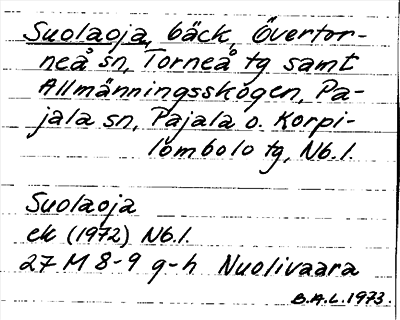 Suolaoja, bäck, Övertor-
neå sn, Torneå tg samt
Allmänningsskogen, Pa-
jala sn, Pajala o. Korpi-
lombolo tg, Nb. l.
Suolaoja
ek (1972) Nb. l.
27 M 8-9 g-h Nuolivaara
B.A.L. 1973.